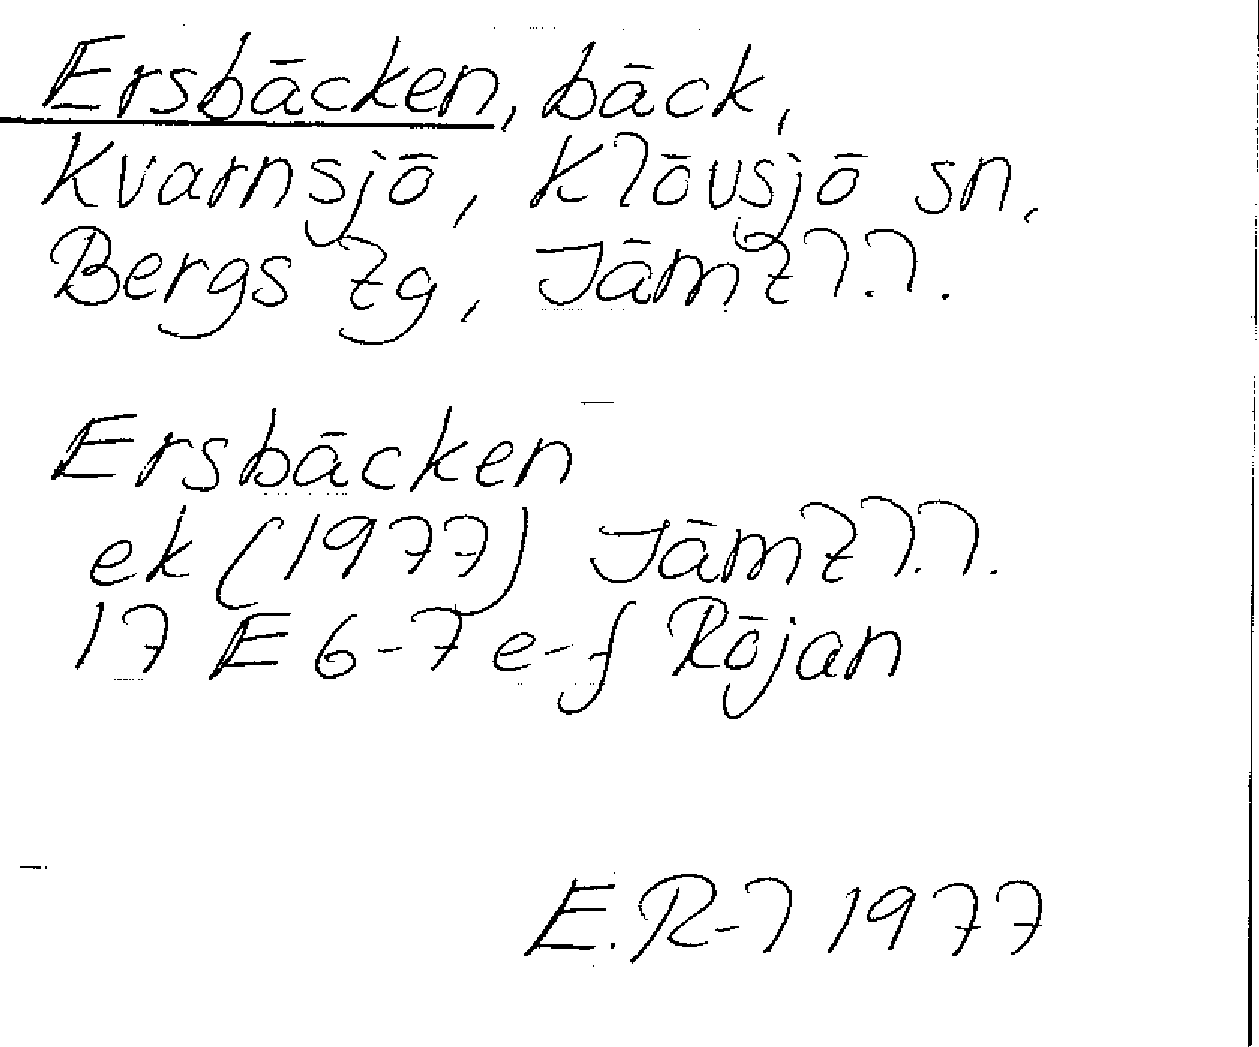 Ersbäcken, bäck,
Kvarnsjö, Klövsjö sn,
Bergs tg, Jämtl.l.
Ersbäcken
ek (1977) Jämtl.l.
17 E 6-7 e-f Röjan
E.R-l 1977